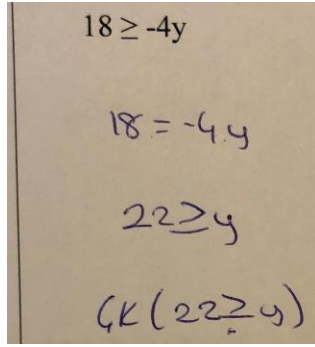 18 ≥ -4y
18 = -4.y
22≥y
ÇK(22≥y)